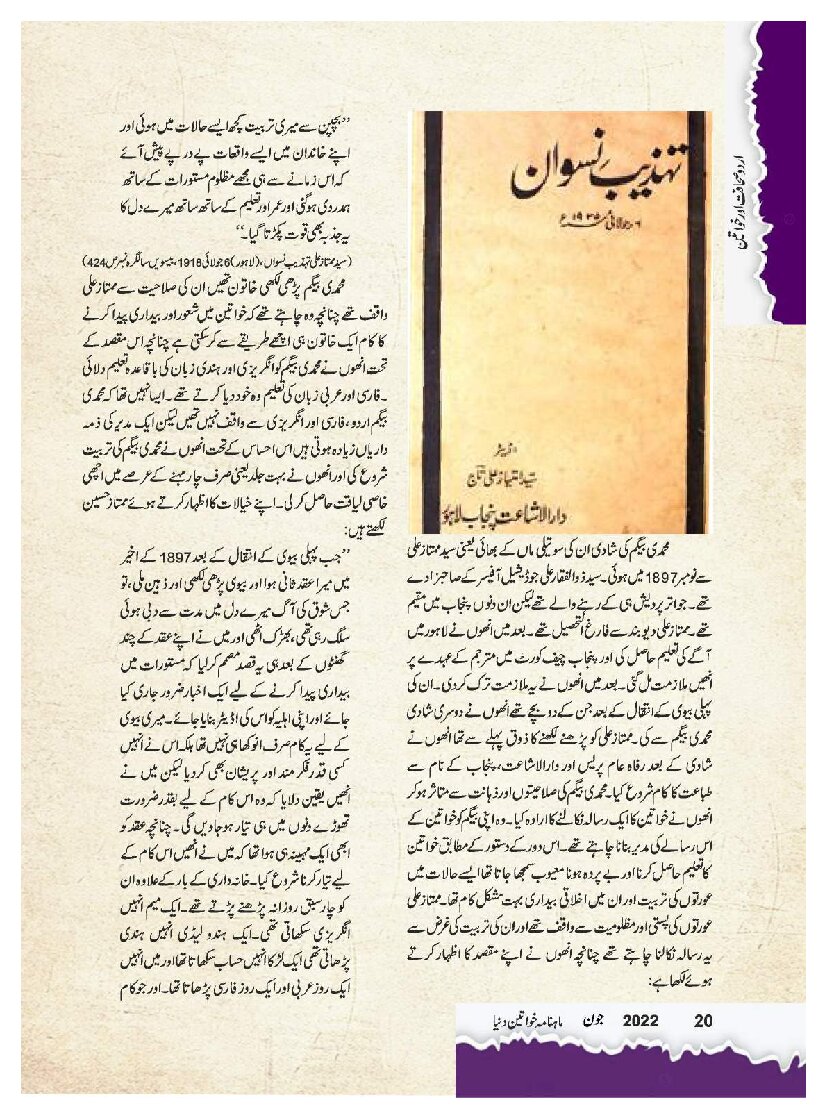 اردو صحافت اور خواتین
تہذیب نسواں
۶ جولائی ۱۹۳۵ء
اڈیٹر
سید امتیاز علی تاج
دارالاشاعت پنجاب لاہور
محمدی بیگم کی شادی ان کی سوتیلی ماں کے بھائی یعنی سید ممتاز علی
سے نومبر 1897 میں ہوئی۔ سید ذوالفقار علی جوڈیشیل آفیسر کے صاحبزادے
تھے۔ جو اتر پردیش ہی کے رہنے والے تھے لیکن ان دنوں پنجاب میں مقیم
تھے۔ ممتاز علی دیوبند سے فارغ التحصیل تھے۔ بعد میں انھوں نے لاہور میں
آگے کی تعلیم حاصل کی اور پنجاب چیف کورٹ میں مترجم کے عہدے پر
انھیں ملازمت مل گئی۔ بعد میں انھوں نے یہ ملازمت ترک کر دی۔ ان کی
پہلی بیوی کے انتقال کے بعد جن کے دو بچے تھے انھوں نے دوسری شادی
محمدی بیگم سے کی۔ ممتاز علی کو پڑھنے لکھنے کا ذوق پہلے سے تھا انھوں نے
شادی کے بعد رفاہ عام پریس اور دارالاشاعت، پنجاب کے نام سے
طباعت کا کام شروع کیا۔ محمدی بیگم کی صلاحیتوں اور ذہانت سے متاثر ہو کر
انھوں نے خواتین کا ایک رسالہ نکالنے کا ارادہ کیا۔ وہ اپنی بیگم کو خواتین کے
اس رسالے کی مدیر بنانا چاہتے تھے۔ اس دور کے دستور کے مطابق خواتین
کا تعلیم حاصل کرنا اور بے پردہ ہونا معیوب سمجھا جاتا تھا ایسے حالات میں
عورتوں کی تربیت اور ان میں اخلاقی بیداری بہت مشکل کام تھا۔ ممتاز علی
عورتوں کی پستی اور مظلومیت سے واقف تھے اور ان کی تربیت کی غرض سے
یہ رسالہ نکالنا چاہتے تھے چنانچہ انھوں نے اپنے مقصد کا اظہار کرتے
ہوئے لکھا ہے:
’’بچپن سے میری تربیت کچھ ایسے حالات میں ہوئی اور
اپنے خاندان میں ایسے واقعات پے در پے پیش آئے
کہ اس زمانے سے ہی مجھے مظلوم مستورات کے ساتھ
ہمدردی ہو گئی اور عمر اور تعلیم کے ساتھ ساتھ میرے دل کا
یہ جذبہ بھی قوت پکڑتا گیا۔‘‘
(سید ممتاز علی تہذیب نسواں، (لاہور) 6 جولائی 1918، بیسویں سالگرہ نمبر ص 424)
محمدی بیگم پڑھی لکھی خاتون تھیں ان کی صلاحیت سے ممتاز علی
واقف تھے چنانچہ وہ چاہتے تھے کہ خواتین میں شعور اور بیداری پیدا کرنے
کا کام ایک خاتون ہی اچھے طریقے سے کر سکتی ہے چنانچہ اس مقصد کے
تحت انھوں نے محمدی بیگم کو انگریزی اور ہندی زبان کی باقاعدہ تعلیم دلائی
۔ فارسی اور عربی زبان کی تعلیم وہ خود دیا کرتے تھے۔ ایسا نہیں تھا کہ محمدی
بیگم اردو، فارسی اور انگریزی سے واقف نہیں تھیں لیکن ایک مدیر کی ذمہ
داریاں زیادہ ہوتی ہیں اس احساس کے تحت انھوں نے محمدی بیگم کی تربیت
شروع کی اور انھوں نے بہت جلد یعنی صرف چار مہینے کے عرصے میں اچھی
خاصی لیاقت حاصل کرلی۔ اپنے خیالات کا اظہار کرتے ہوئے ممتاز حسین
لکھتے ہیں:
’’جب پہلی بیوی کے انتقال کے بعد 1897 کے اخیر
میں میرا عقد ثانی ہوا اور بیوی پڑھی لکھی اور ذہین ملی، تو
جس شوق کی آگ میرے دل میں مدت سے دبی ہوئی
سلگ رہی تھی، بھڑک اٹھی اور میں نے اپنے عقد کے چند
گھنٹوں کے بعد ہی یہ قصد مصمم کر لیا کہ مستورات میں
بیداری پیدا کرنے کے لیے ایک اخبار ضرور جاری کیا
جائے اور اپنی اہلیہ کو اس کی اڈیٹر بنایا جائے۔ میری بیوی
کے لیے یہ کام صرف انوکھا ہی نہیں تھا بلکہ اس نے انہیں
کسی قدر فکرمند اور پریشان بھی کر دیا لیکن میں نے
انھیں یقین دلایا کہ وہ اس کام کے لیے بقدر ضرورت
تھوڑے دنوں میں ہی تیار ہو جا دیں گی۔ چنانچہ عقد کو
ابھی ایک مہینہ ہی ہوا تھا کہ میں نے انھیں اس کام کے
لیے تیار کرنا شروع کیا۔ خانہ داری کے بار کے علاوہ ان
کو چار سبق روزانہ پڑھنے پڑتے تھے۔ ایک میم انہیں
انگریزی سکھاتی تھی۔ ایک ہندو لیڈی انہیں ہندی
پڑھاتی تھی ایک لڑکا انہیں حساب سکھاتا تھا اور میں انہیں
ایک روز عربی اور ایک روز فارسی پڑھاتا تھا۔ اور جو کام
20 2022 جون ماہنامہ خواتین دنیا